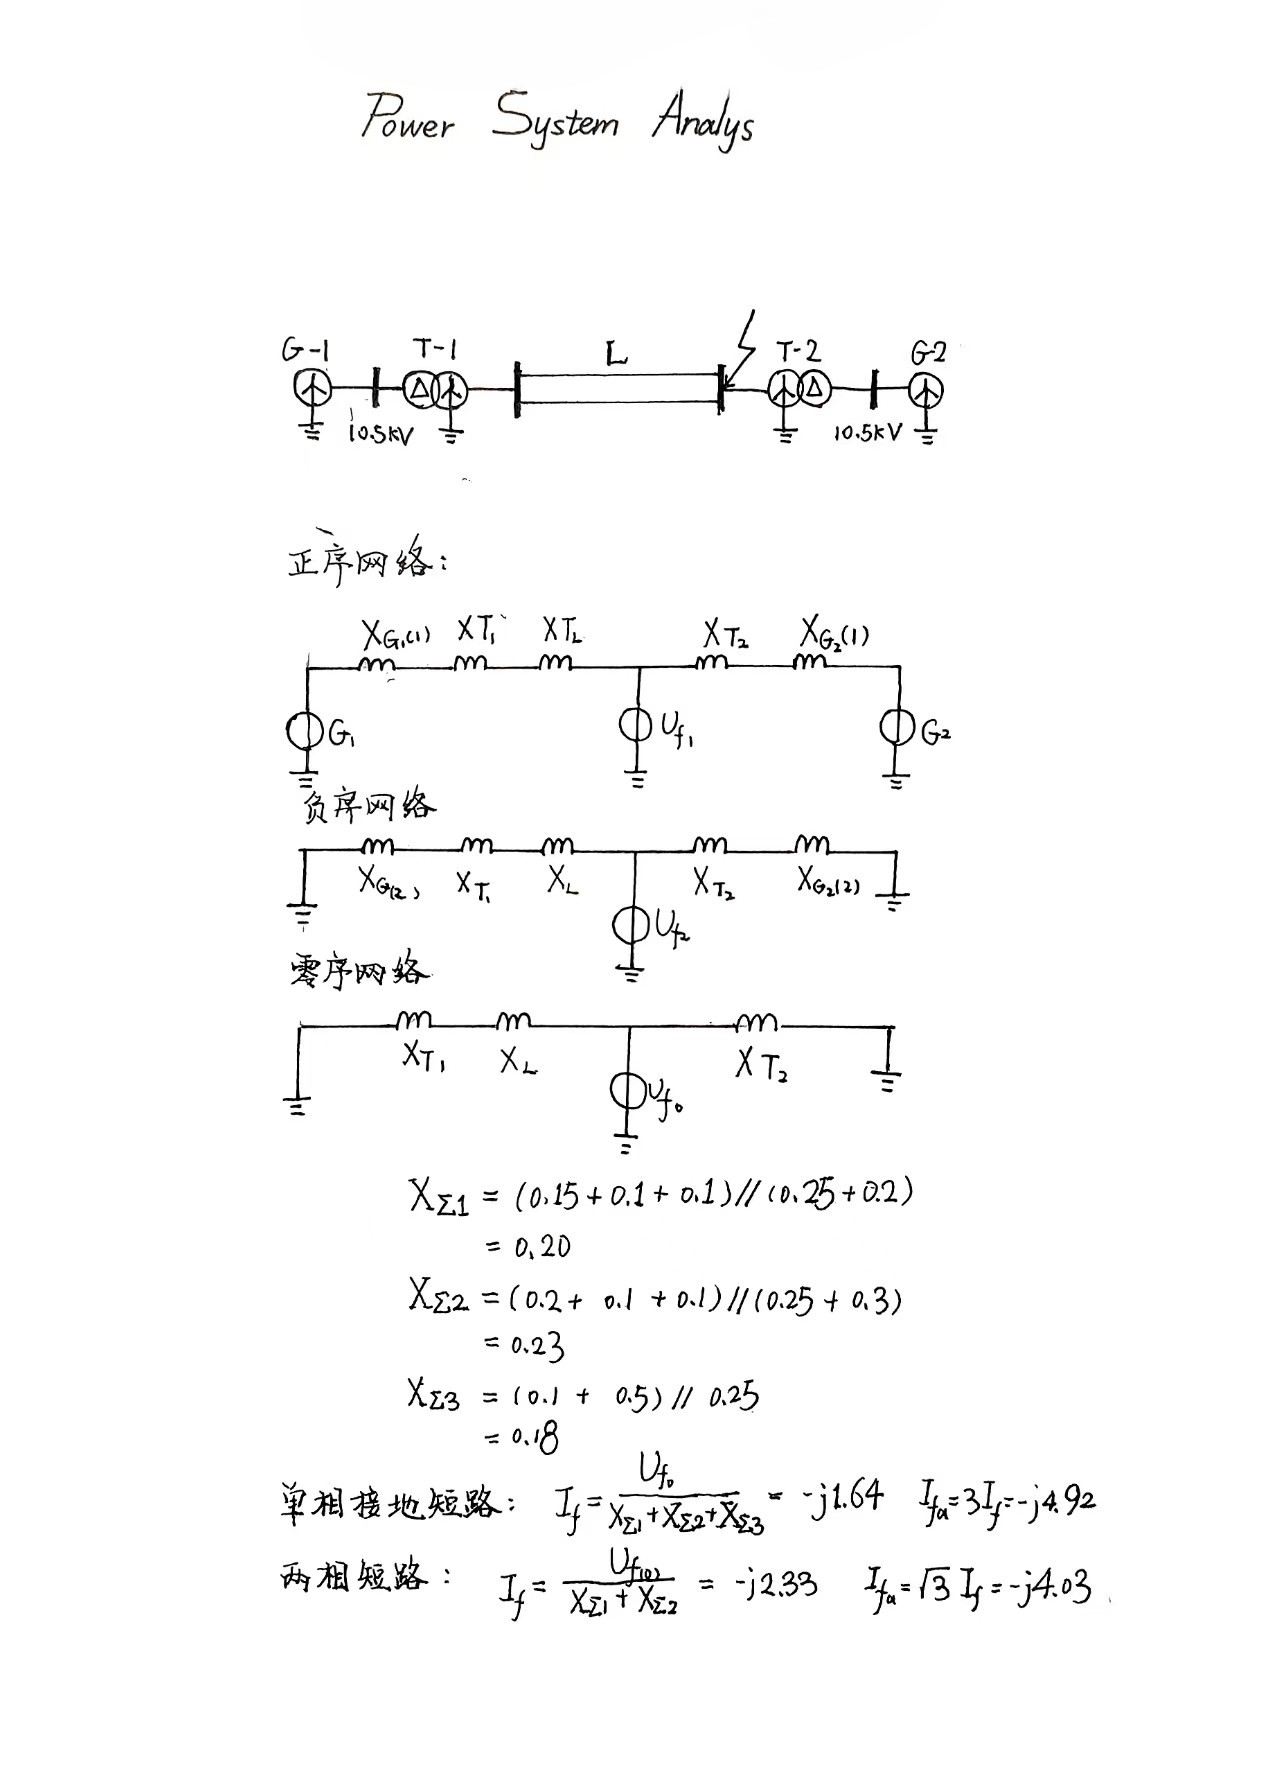 Power System Analys
G-1 T-1 L T-2 G-2
10.5kV 10.5kV
正序网络:
XG₁(1) XT₁ XTL XT₂ XG₂(1)
G₁ Uf₁ G₂
负序网络
XG(2) XT₁ XL XT₂ XG₂(2)
Uf₂
零序网络
XT₁ XL XT₂
Uf₀
XΣ1 = (0.15+0.1+0.1)//(0.25+0.2)
= 0.20
XΣ2 = (0.2+ 0.1 + 0.1)//(0.25 + 0.3)
= 0.23
XΣ3 = (0.1 + 0.5)// 0.25
= 0.18
单相接地短路: If = Uf₀/(XΣ1+XΣ2+XΣ3) = -j1.64 Ifa=3If=-j4.92
两相短路: If = Uf(0)/(XΣ1+XΣ2) = -j2.33 Ifa=√3 If=-j4.03